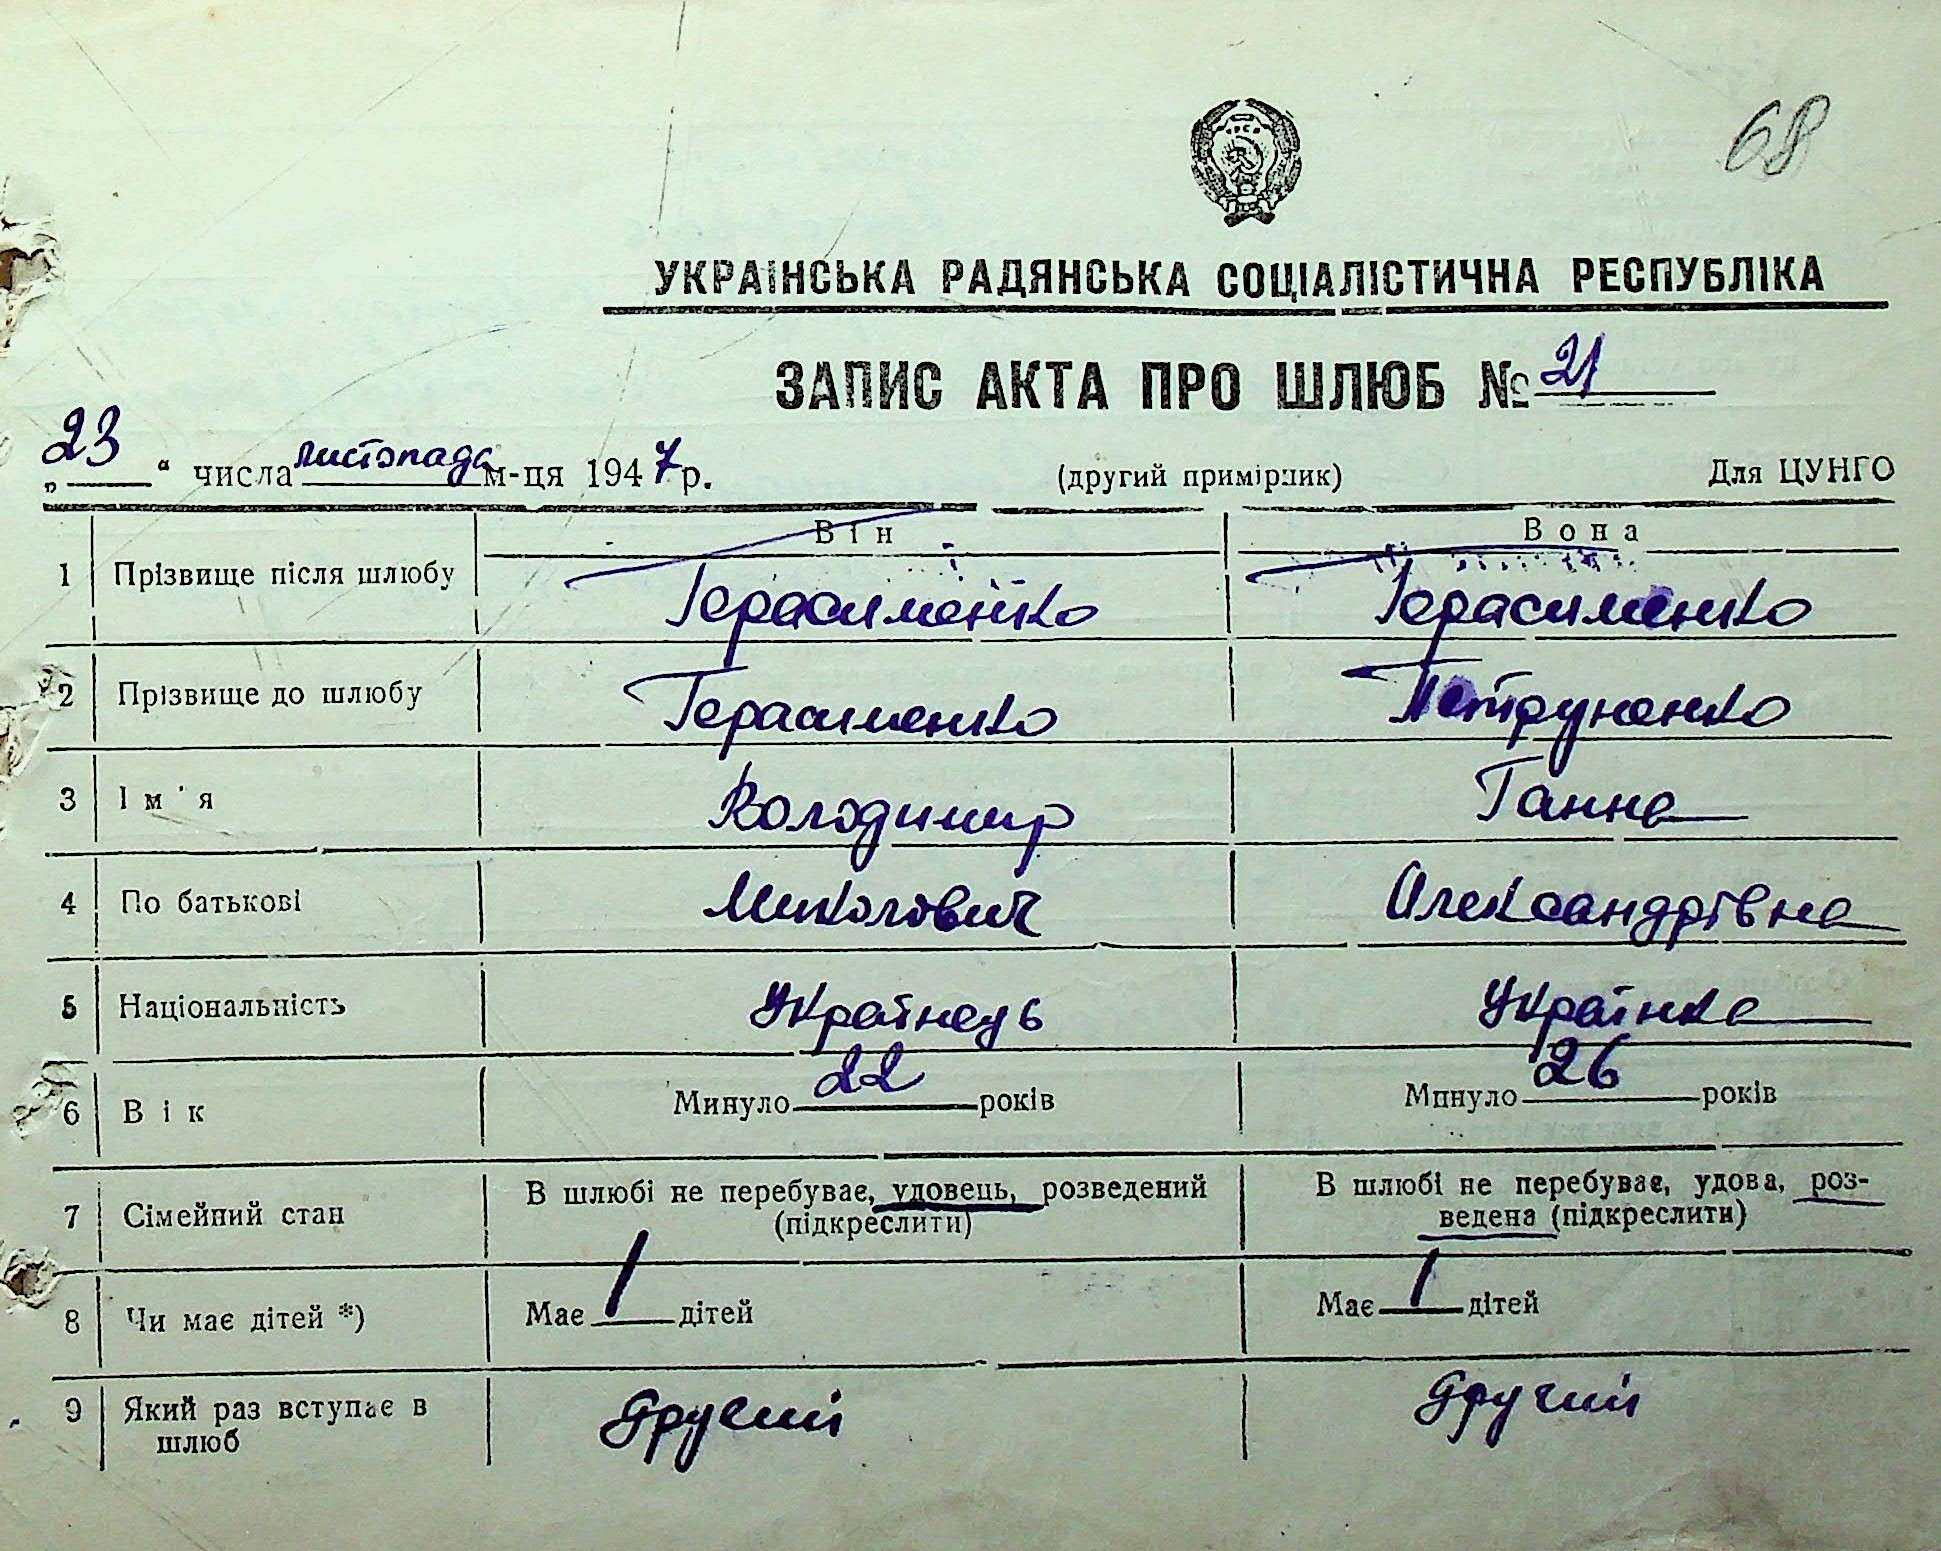 68
УКРАЇНСЬКА РАДЯНСЬКА СОЦІАЛІСТИЧНА РЕСПУБЛІКА
ЗАПИС АКТА ПРО ШЛЮБ № 21
„23“ числа листопада м-ця 1947 р. (другий примірник) Для ЦУНГО
Він Вона
1 Прізвище після шлюбу Герасименко Герасименко
2 Прізвище до шлюбу Герасименко Петруненко
3 Ім'я Володимир Ганна
4 По батькові Миколович Александрівна
5 Національність Українець Українка
6 Вік Минуло 22 років Минуло 26 років
7 Сімейний стан В шлюбі не перебуває, удовець, розведений (підкреслити) В шлюбі не перебуває, удова, роз-
ведена (підкреслити)
8 Чи має дітей *) Має 1 дітей Має 1 дітей
9 Який раз вступає в шлюб другий другий